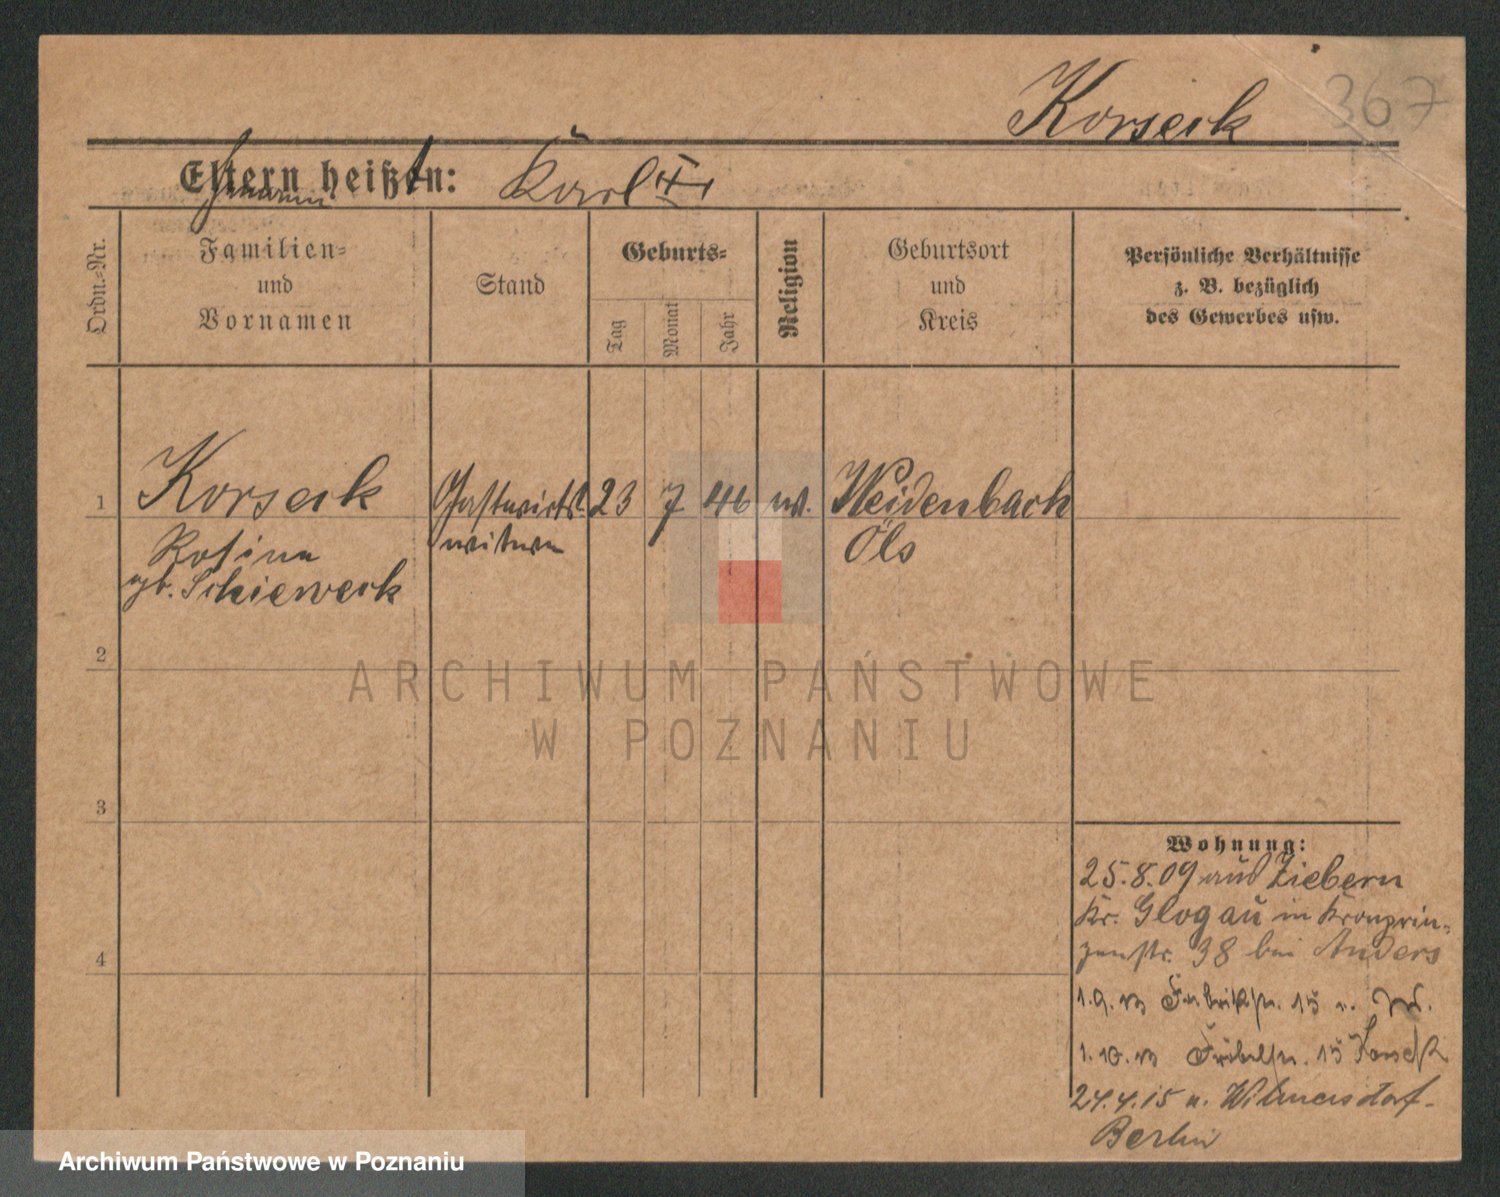 Korseck 367
Eltern heißen: Karl
Ordn.-Nr.
Familien-
und
Vornamen
Stand
Geburts-
Tag
Monat
Jahr
Religion
Geburtsort
und
Kreis
Persönliche Verhältnisse
z. B. bezüglich
des Gewerbes usw.
1 Korseck Gastwirts- 23 7 46 Weidenbach
witwe Öls
Rosina
gb. Schieweck
2
3
4
Wohnung:
25.8.09 aus Ziebern
Kr. Glogau in Kronprin-
zenstr. 38 bei Anders
1.9. Fabrikstr. 15
1.10. 15
24.4.15 n. Wilmersdorf-
Berlin
ARCHIWUM PAŃSTWOWE
W POZNANIU
Archiwum Państwowe w Poznaniu